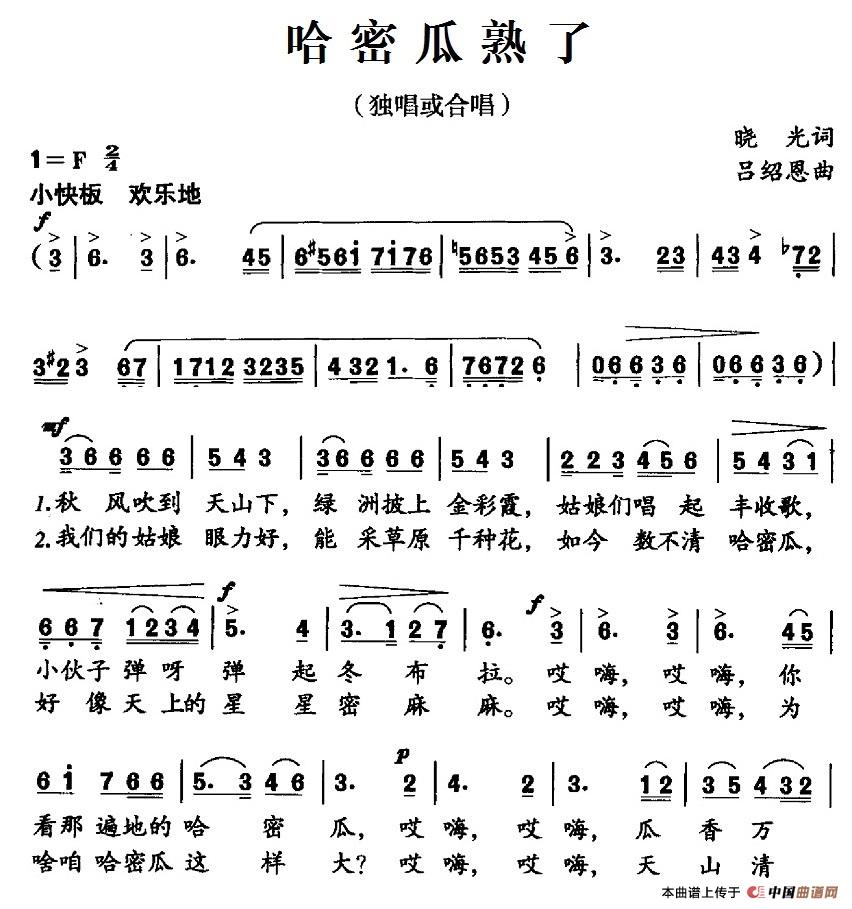 哈密瓜熟了
(独唱或合唱)
晓 光词
1=F 2/4
吕绍恩曲
小快板 欢乐地
f
(3 | 6. 3 | 6. 45 | 6#561̇ 71̇76 | ♮5653 456 | 3. 23 | 43 4 ♭72 |
3#2 3 67 | 1712 3235 | 432 1. 6 | 7672 6 | 0663 6 | 0663 6) |
mf
36 66 66 | 54 3 | 36 66 66 | 54 3 | 22 3 45 6 | 54 31 |
1.秋 风吹到 天山下, 绿 洲披上 金彩霞, 姑娘们唱 起 丰收歌,
2.我们的姑娘 眼力好, 能 采草原 千种花, 如今 数不清 哈密瓜,
f f
66 7 1234 | 5. 4 | 3. 1 27 | 6. 3 | 6. 3 | 6. 45 |
小伙子弹呀 弹 起 冬 布 拉。 哎 嗨, 哎 嗨, 你
好 像天 上的 星 星 密 麻 麻。 哎 嗨, 哎 嗨, 为
p
61̇ 766 | 5. 3 46 | 3. 2 | 4. 2 | 3. 12 | 35 432 |
看那 遍地的 哈 密 瓜, 哎 嗨, 哎 嗨, 瓜 香 万
啥咱 哈密瓜 这 样 大? 哎 嗨, 哎 嗨, 天 山 清
本曲谱上传于 中国曲谱网